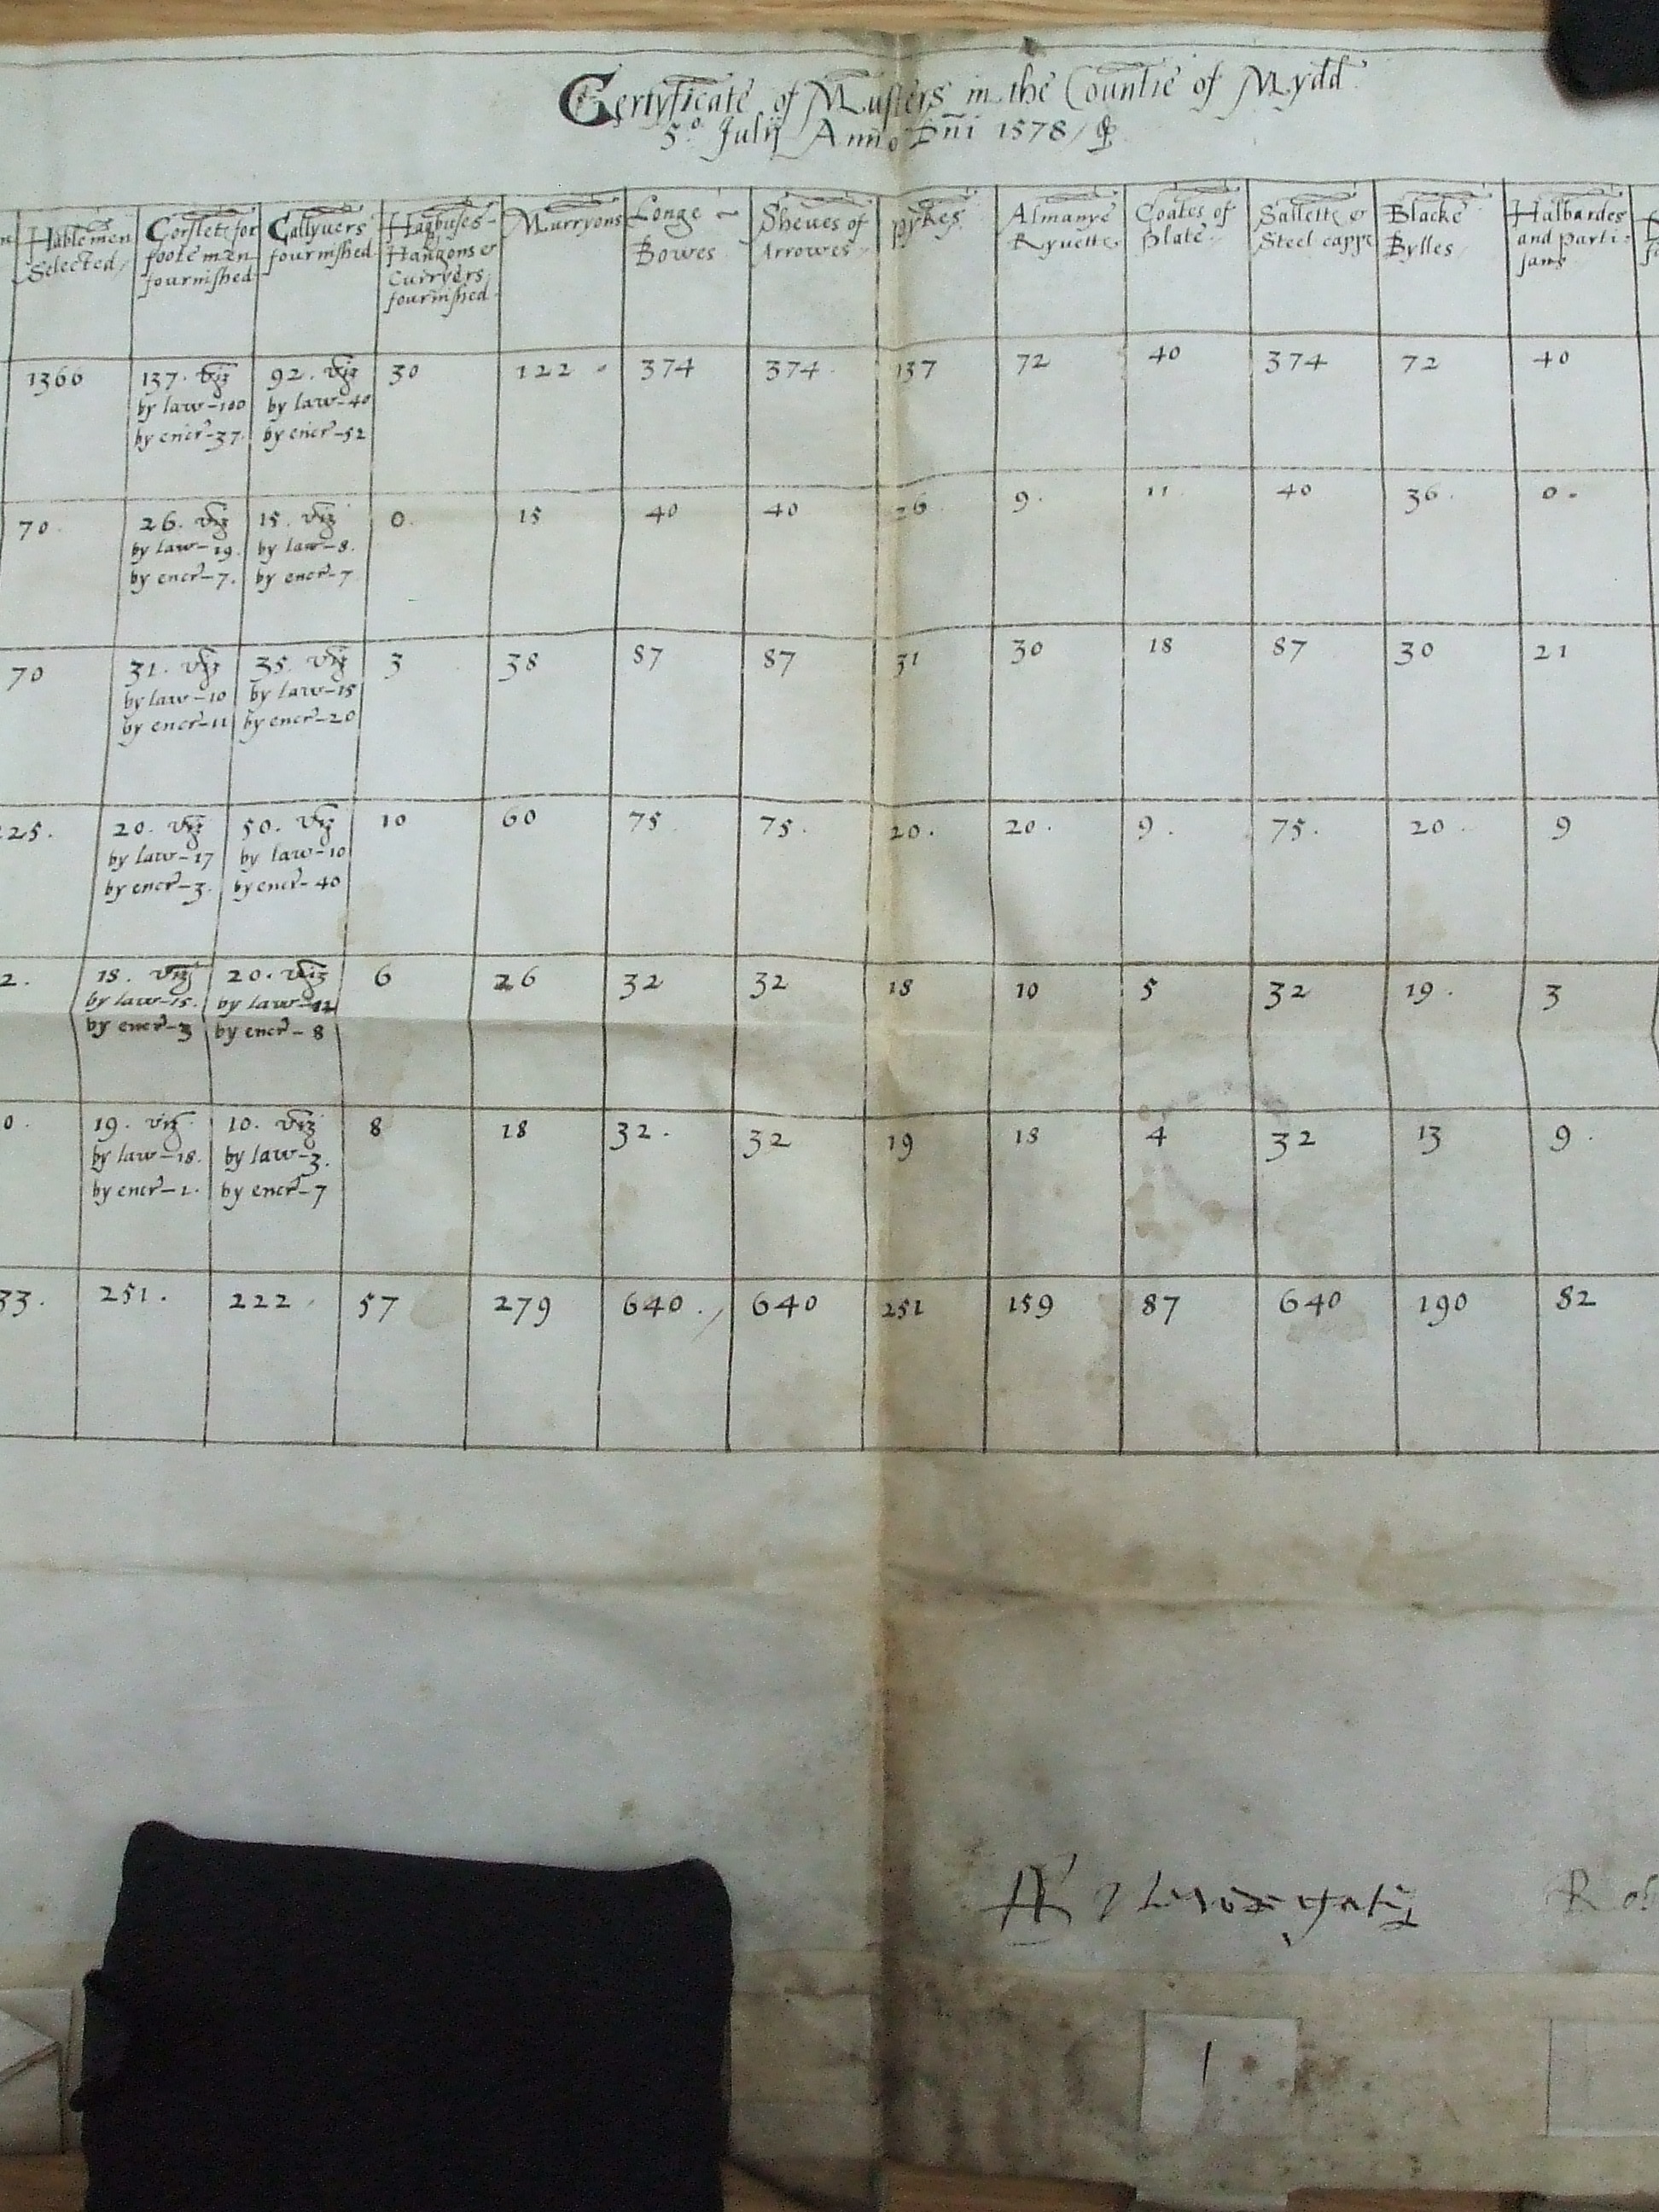 Certyficate of Musters in the Countie of Mydd
5.º Julij Anno Dñi 1578
Hablemen Selected
Corslett for foote men fournished
Callyuers fournished
Hagbuses Curryers fournished
Murryons
Longe Bowes
Sheues of Arrowes
pykes
Almanye Ryuetts
Coates of plate
Salletts & Steel capps
Blacke Bylles
Halbardes and parti: sans
1366 137. viz 92. viz 30 122 374 374 137 72 40 374 72 40
by law-100 by law-40
by encr-37. by encr-52
70. 26. viz 15. viz 0. 15 40 40 26 9. 11 40 36. 0.
by law-19. by law-8.
by encr-7. by encr-7
70 31. viz 35. viz 3 38 87 87 31 30 18 87 30 21
by law-10 by law-15
by encr-11 by encr-20
25. 20. viz 50. viz 10 60 75 75. 20. 20. 9. 75. 20 9
by law-17 by law-10
by encr-3. by encr-40
2. 18. viz 20. viz 6 26 32 32 18 10 5 32 19. 3
by law-15. by law-12
by encr-3 by encr-8
0. 19. viz 10. viz 8 18 32. 32 19 18 4 32 13 9.
by law-18. by law-3.
by encr-1. by encr-7
33. 251. 222 57 279 640. 640 251 159 87 640 190 82
Rob